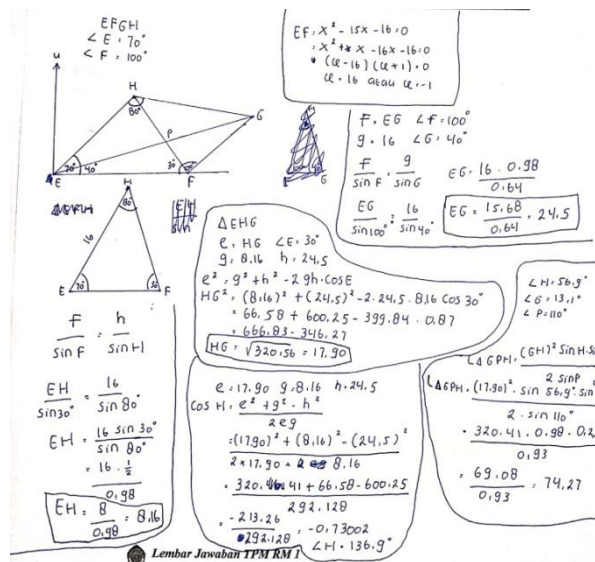 EFGH
∠E = 70°
∠F = 100°
u
H
80°
G
P
70° 40°
30°
E
F
H
80°
16
70°
30°
E
F
F/sin F = h/sin H
EH/sin 30° = 16/sin 80°
EH = 16 sin 30°/sin 80°
= 16 · 1/2 / 0,98
EH = 8/0,98 = 8,16
EF: x² - 15x - 16 = 0
= x² + x - 16x - 16 = 0
(x - 16)(x + 1) = 0
x = 16 atau x = -1
F = EG ∠F = 100°
g = 16 ∠G = 40°
F/sin F = g/sin G
EG/sin 100° = 16/sin 40°
EG = 16 · 0.98 / 0.64
EG = 15,68/0.64 = 24,5
ΔEHG
e = HG ∠E = 30°
g = 8,16 h = 24,5
e² = g² + h² - 2gh · cos E
HG² = (8,16)² + (24,5)² - 2 · 24,5 · 8,16 cos 30°
= 66,58 + 600,25 - 399,84 · 0,87
= 666,83 - 346,27
HG = √320,56 = 17,90
e = 17,90 g = 8,16 h = 24,5
cos H = e² + g² - h² / 2eg
= (17,90)² + (8,16)² - (24,5)² / 2 × 17,90 × 8,16
= 320,41 + 66,58 - 600,25 / 292.128
= -213,26/292.128 = -0,73002
∠H = 136,9°
∠H = 56,9°
∠G = 13,1°
∠P = 110°
LΔGPH = (GH)² sin H · Si / 2 sin P
LΔGPH = (17,90)² · sin 56,9° sin / 2 · sin 110°
= 320.41 · 0.98 · 0,2 / 0,93
= 69,08/0,93 = 74,27
Lembar Jawaban TPM RM 1